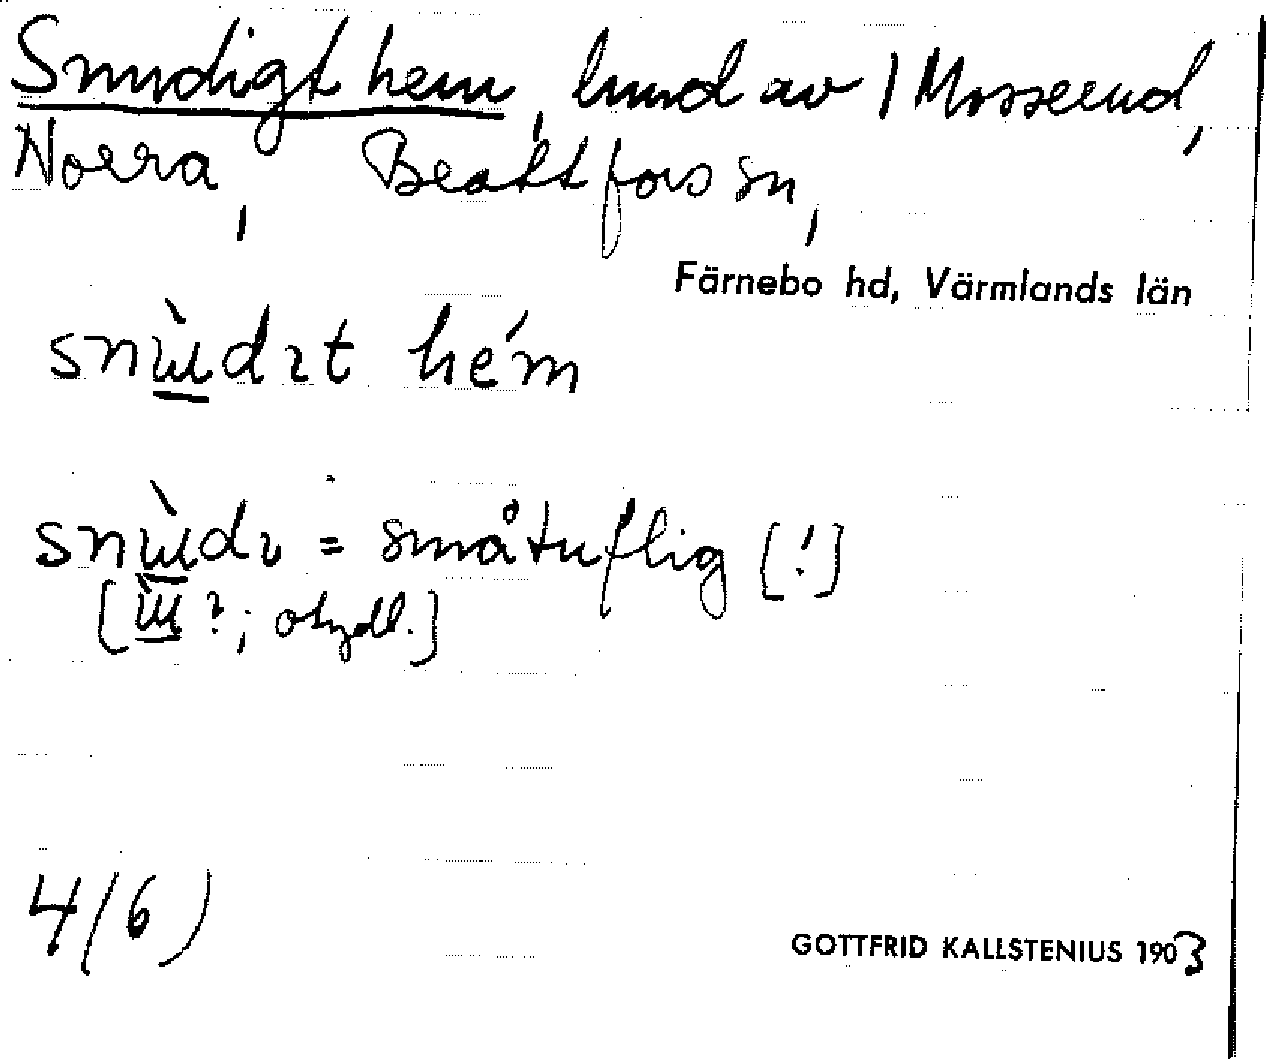 Snudigt hem, lund av 1 Mosserud,
Norra, Beattfors sn,
Färnebo hd, Värmlands län
snɯ̱̀dɪt hém
snɯ̱̀dɪ = småtuflig [!]
[ɯ̱̀ ?; otydl.]
4(6)
GOTTFRID KALLSTENIUS 1903